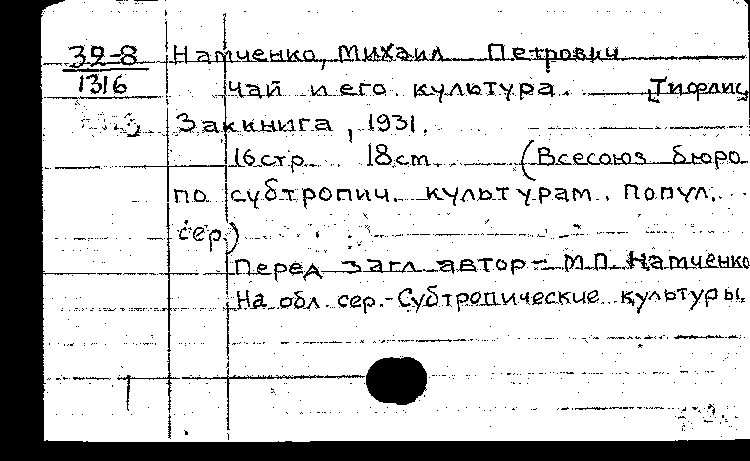 32-8 Натченко, Михаил Петрович
1316 Чай и его культура. [Тифлис
Заккнига, 1931.
16стр. 18cm. (Всесоюз бюро
по субтропич. культурам. Попул.
сер.)
Перед загл. автор - М.П. Натченко
На обл. сер.- Субтропические культуры.
1